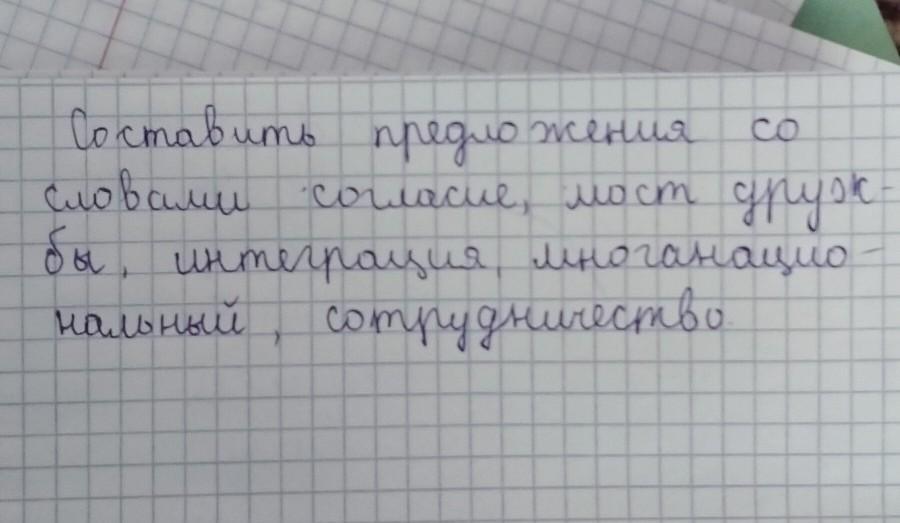 Составить предложения со
словами согласие, мост друж-
бы, интеграция, многанацио-
нальный, сотрудничество.